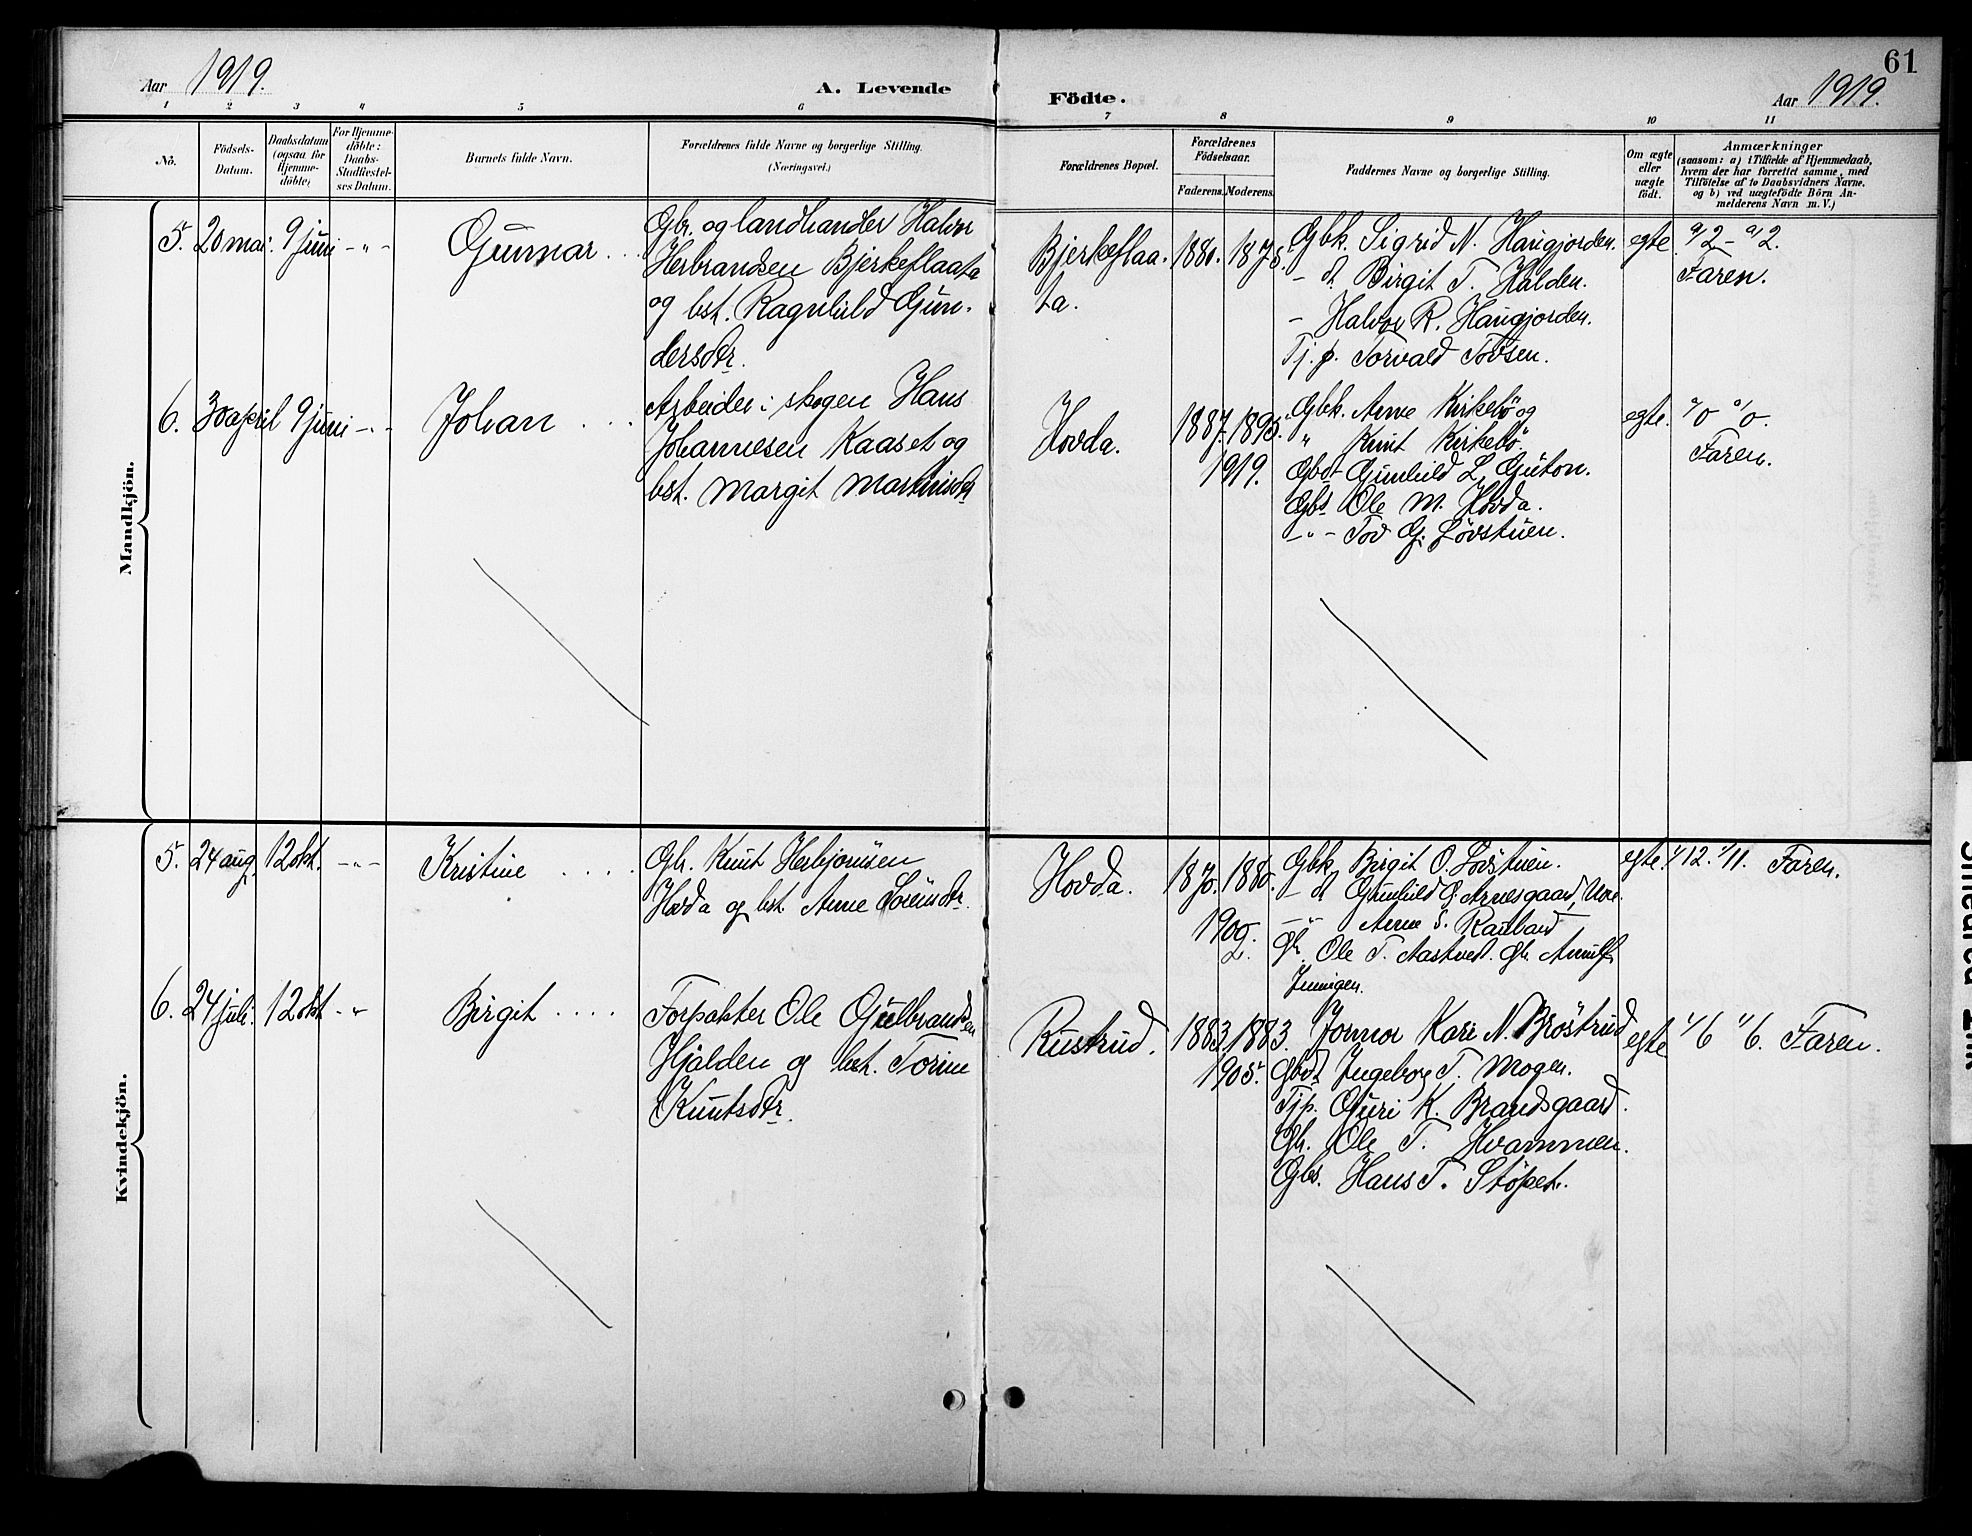 61
Aar 1919.
A. Levende
Födte.
Aar 1919.
1 2 3 4 5 6 7 8 9 10 11
No.
Födsels-
Datum.
Daabsdatum
(ogsaa for
Hjemme-
döbte)
For Hjemme-
döbte:
Daabs-
Stadfæstel-
ses Datum.
Barnets fulde Navn.
Forældrenes fulde Navne og borgerlige Stilling.
(Næringsvei.)
Forældrenes Bopæl.
Forældrenes
Födselsaar.
Faderens. Moderens.
Faddernes Navne og borgerlige Stilling.
Om ægte
eller
uægte
födt.
Anmærkninger
(saasom: a) i Tilfælde af Hjemmedaab,
hvem der har forrettet samme, med
Tilföielse af to Daabsvidners Navne,
og b) ved uægtefödte Börn An-
melderens Navn m. V.)
Mandkjön.
5. 20 mai. 9 juni - " - Gunnar ...
Gbr. og landhandler Halvor
Herbrandsen Bjerkeflaata
og hst. Ragnhild Gun-
dersdtr.
Bjerkeflaa-
ta.
1880. 1875.
Gbk. Sigrid N. Haugjorden.
- dt. Birgit T. Halden.
- Halvor R. Haugjorden.
Tj. p. Torvald Tovsen.
egte. 9/2 - 9/2.
Faren.
6. 30 april 9 juni - " - Johan ...
Arbeider i skogen Hans
Johannesen Kaaset og
hst. Margit Martinsdtr
Hovda.
1887. 1895.
1919.
Gbk. Arne Kirkebö og
" Knut Kirkebö
Gbdt Gunhild L. Guton.
Gbs Ole M. Hovda.
- " - Tov G. Lövstuen.
egte. %
Faren.
Kvindekjön.
5. 24 aug. 12 okt. - " - Kristine ....
Gbr. Knut Herbjörnsen
Hovda og hst. Anne Sörensdtr.
Hovda.
1870. 1880.
1902.
Gbk. Birgit O. Lövstuen.
- dt Gunhild G. Arnesgaard, Uvd.
- " - Anne S. Raubard
Gbr. Ole T. Aastved. Gbr. Arnulf
egte. 1/12. 1/11. Faren.
6. 24 juli. 12 okt - " Birgit ....
Forpakter Ole Gulbrandsen
Hjalden og hst. Torine
Knutsdtr.
Rustrud.
1883. 1883.
1905.
Jormor Kari N. Bröstrud
Gbdt Ingeborg T. Mogen.
Tjp. Guri K. Brandsgaard.
Gbr. Ole T. Hvammen.
Gbs. Hans T. Stöpet.
egte 1/6 1/6. Faren.